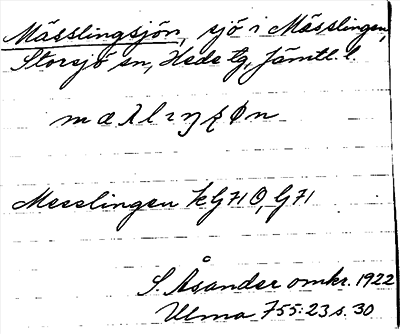 Mässlingsjön, sjö i Mässlingen,
Storsjö sn, Hede tg, Jämtl. l.
Messlingen kG71Ö, G71
S. Åsander omkr. 1922
Ulma 755:23 s. 30